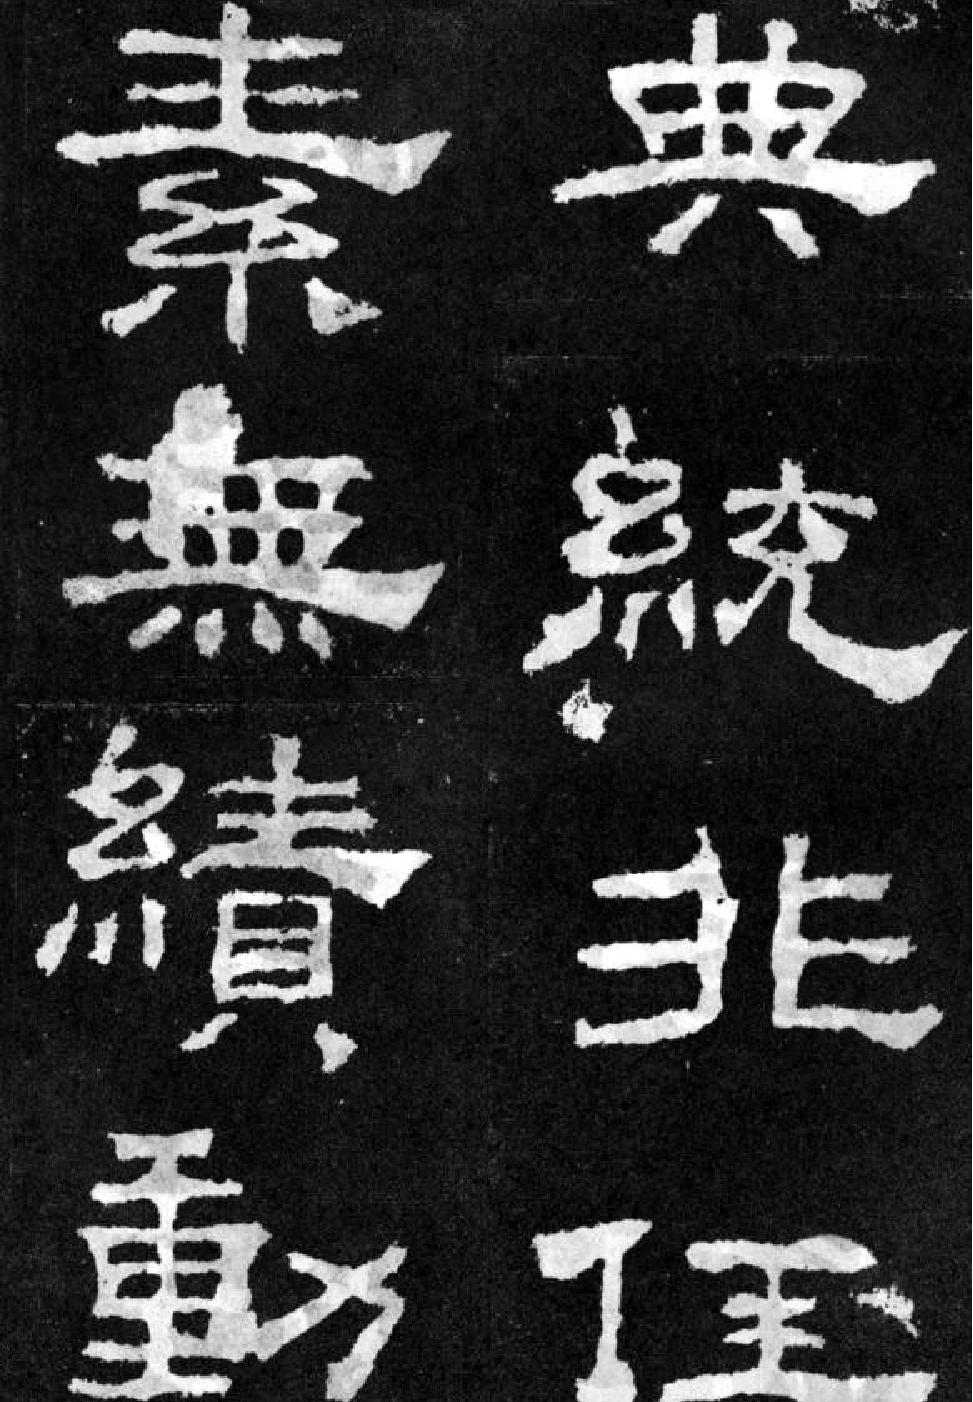 典統非任
素無績動